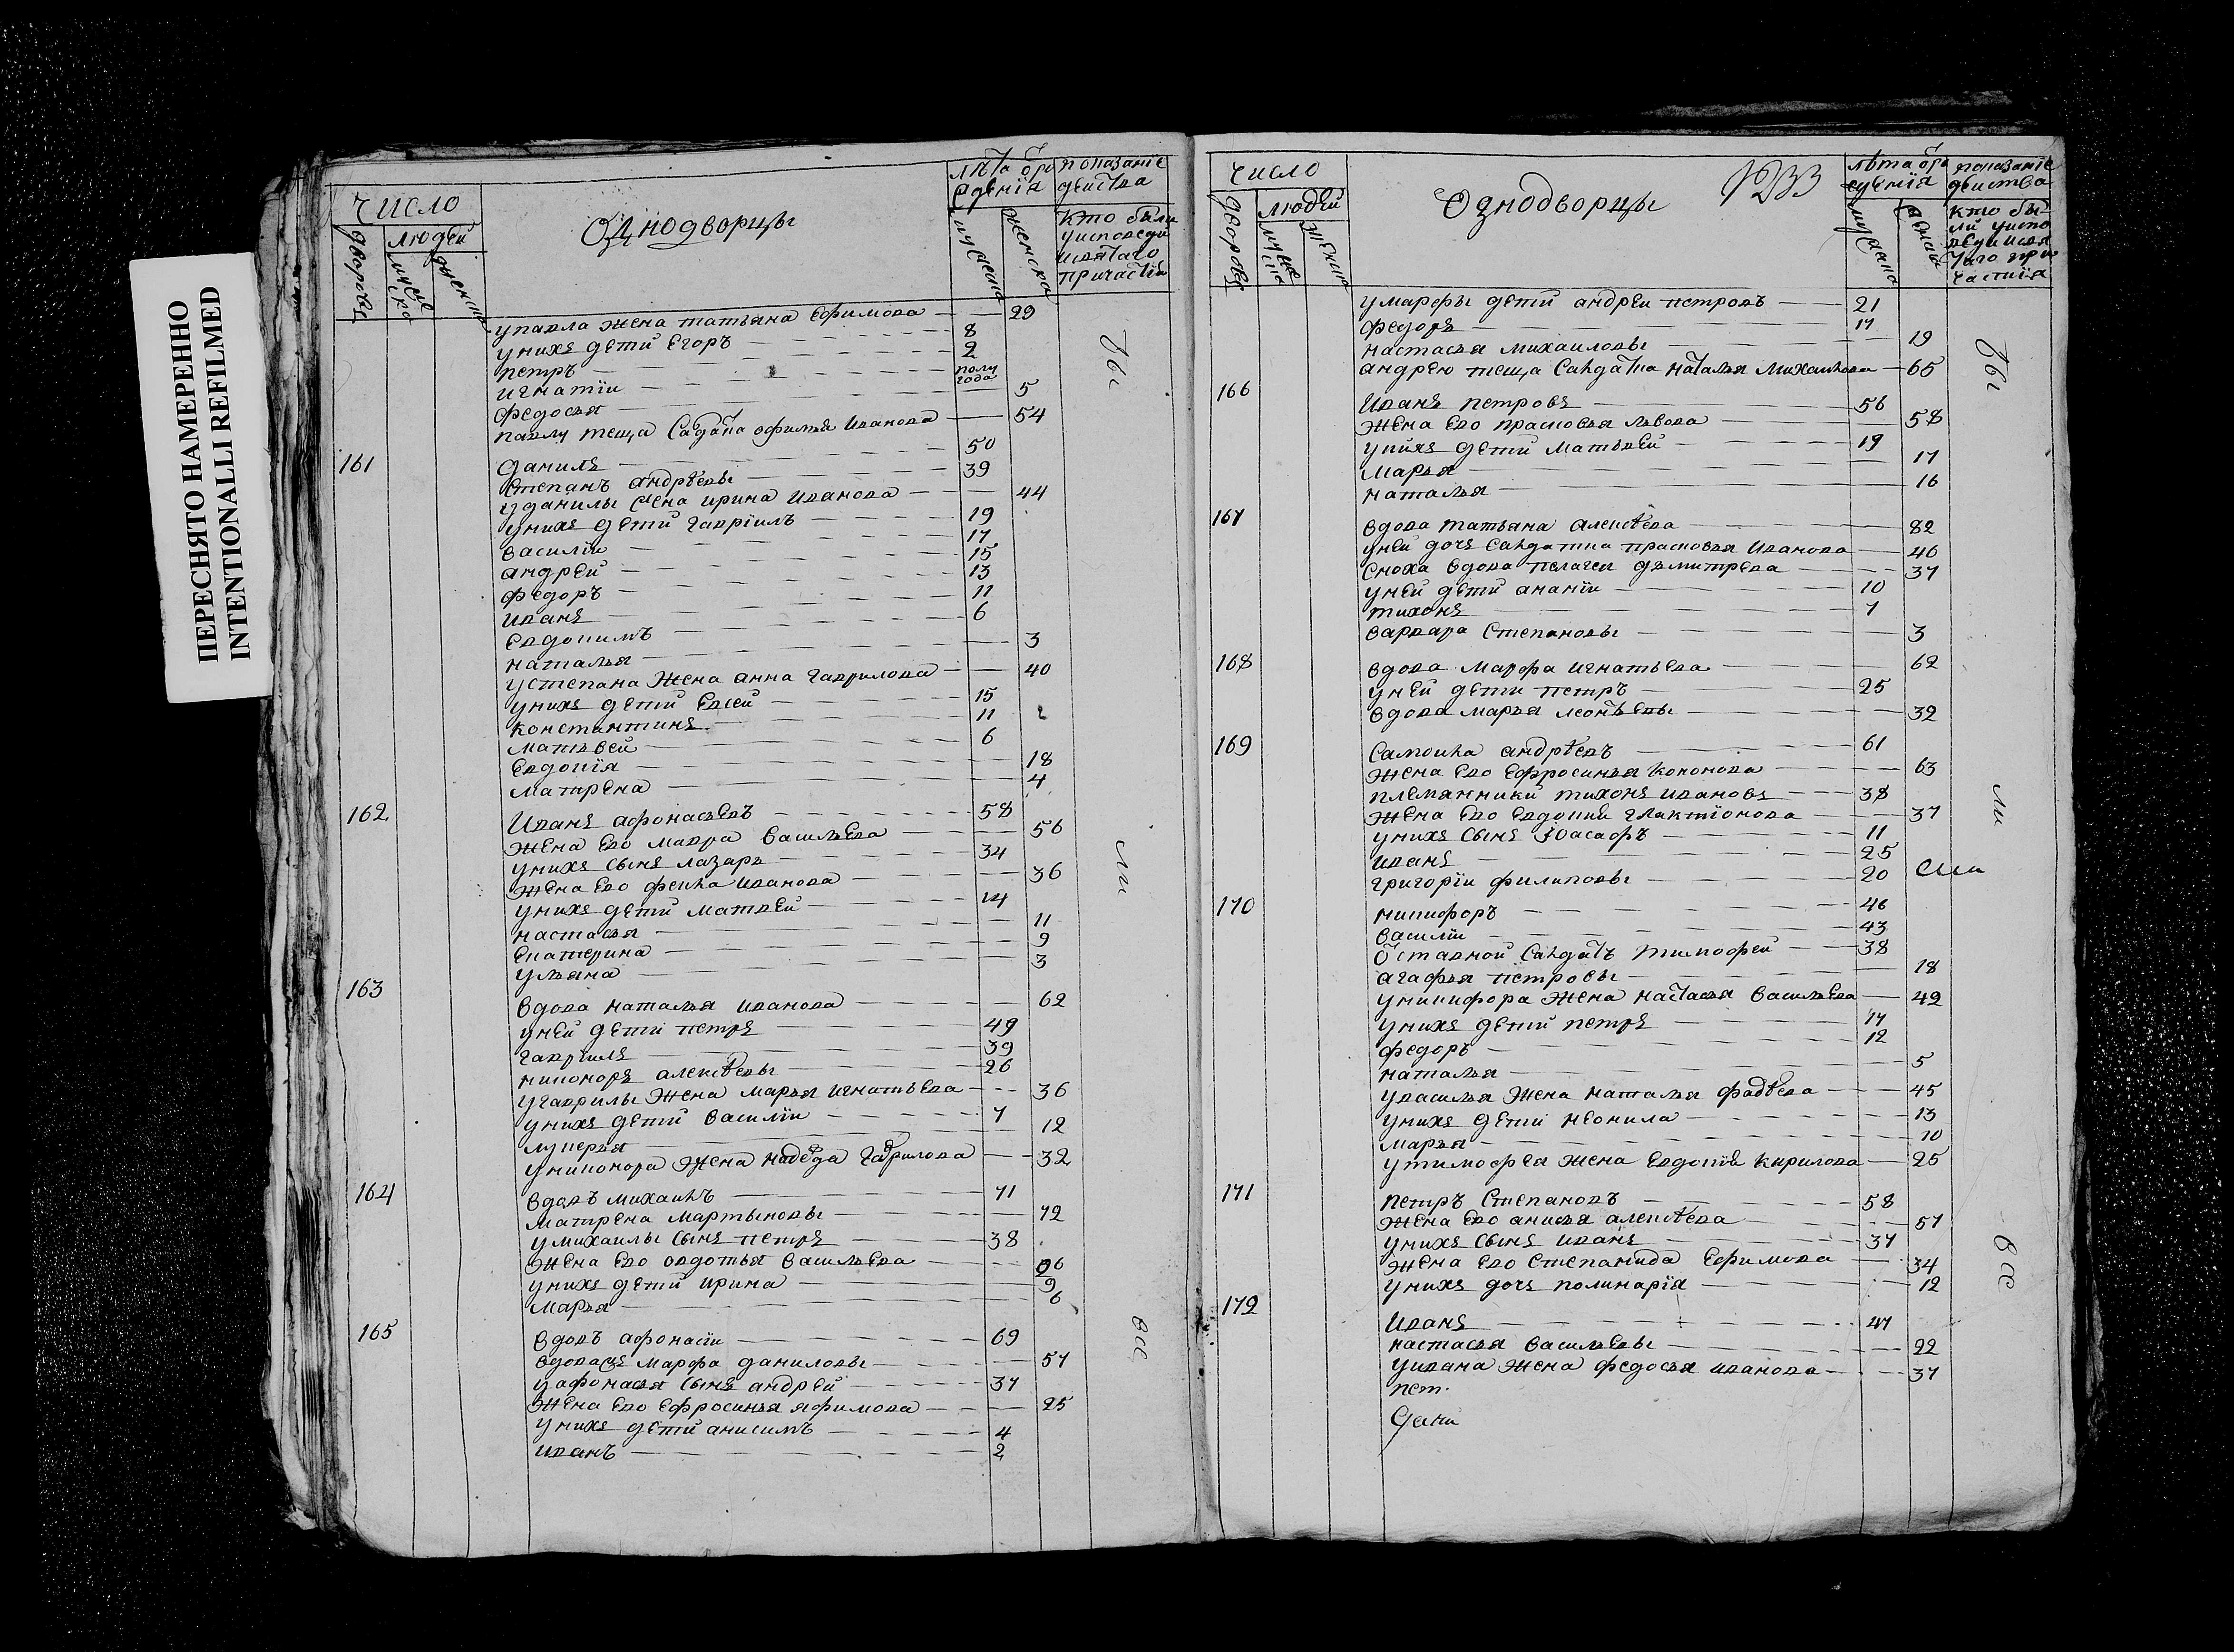 ПЕРЕСНЯТО НАМЕРЕННО
INTENTIONALLI REFILMED
число
дворовъ
людей
мужеска
женска
Однодворцы
лѣта отро
ждения
мужеска
женска
показание
действа
кто были
уисповеди
исвятаго
причастия
упавла жена татьяна Ефимова 29
унихъ дети Егоръ 8
петръ 2
игнатïи полугода
федосья 5
павлу теща Салдатка Офимья Иванова 54
161 данилъ 50
Степанъ андрѣевы 39
уданилы жена ирина Иванова 44
унихъ дети гаврïилъ 19
василïи 17
андрей 15
федоръ 13
иванъ 11
Евдокимъ 6
наталья 3
устепана жена анна гаврилова 40
унихъ дети Евсей 15
константинъ 11
матьвей 6
Евдокïя 18
матрена 4
162 Иванъ афонасьевъ 58
жена Ево мавра васильева 56
унихъ сынъ лазарь 34
жена Ево фекла иванова 36
унихъ дети матвей 14
настасья 11
Екатерина 9
ульяна 3
163 вдова наталья иванова 62
уней дети петръ 49
гаврïилъ 39
никоноръ алексѣевы 26
угаврилы жена марья игнатьева 36
унихъ дети василïи 7
лукерья 12
униконора жена надежда гаврилова 32
164 вдовъ михаилъ 71
матрена мартыновы 72
умихаилы сынъ петръ 38
жена Ево овдотья васильева 36
унихъ дети ирина 9
марья 6
165 вдовъ афонасïи 69
марфа даниловы 57
уафонасья сынъ андрей 37
жена Ево Ефросинья яфимова 25
унихъ дети анисимъ 4
иванъ 2
бы
ли
все
число
дворовъ
людей
мужеска
женска
Однодворцы
лѣта отро
ждения
мужеска
женска
показанïе
действа
кто бы
ли уиспо
веди исвя
таго при
частïя
умарфы дети андрей петровъ 21
федоръ 17
настасья михаиловы 19
андрею теща Салдатка наталья михаилова 65
166 Иванъ петровъ 56
жена Ево прасковья львова 58
унихъ дети матьвей 19
марья 17
наталья 16
167 вдова татьяна алексѣева 82
уней дочь Салдатка прасковья иванова 40
сноха вдова пелагея дьмитрева 37
уней дети ананïи 10
тихонъ 7
варвара Степановы 3
168 вдова марфа игнатьева 62
уней дети петръ 25
вдова марья леонтьевы 32
169 Самоила андрѣевъ 61
жена Ево Ефросинья кононова 63
племянники тихонъ ивановъ 38
жена Ево Евдокия глактïонова 37
унихъ сынъ Iоасафъ 11
иванъ 25
григорïи филиповы 20
170 никифоръ 46
василïи 43
отставной Салдатъ тимофей 38
агафья петровы 18
уникифора жена настасья васильева 42
унихъ дети петръ 17
федоръ 12
наталья 5
увасилья жена наталья фадѣева 45
унихъ дети неонила 13
марья 10
утимофея жена Евдокия кирилова 25
171 петръ Степановъ 58
жена Ево анисья алексѣева 57
унихъ сынъ иванъ 37
жена Ево Степанида Ефимова 34
унихъ дочь полинарïя 12
172 Иванъ 47
настасья васильевы 22
уивана жена федосья иванова 37
бы
ли
все